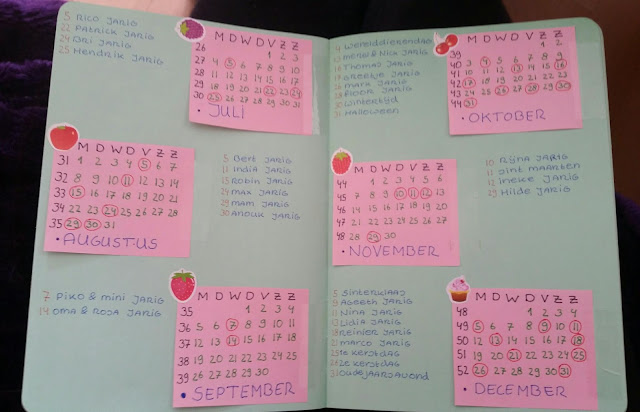 5 RICO JARIG
22 PATRICK JARIG
24 BRI JARIG
25 HENDRIK JARIG
M D W D V Z Z
26 1 2 3
27 4 5 6 7 8 9 10
28 11 12 13 14 15 16 17
29 18 19 20 21 22 23 24
30 25 26 27 28 29 30 31
• JULI
M D W D V Z Z
31 1 2 3 4 5 6 7
32 8 9 10 11 12 13 14
33 15 16 17 18 19 20 21
34 22 23 24 25 26 27 28
35 29 30 31
• AUGUSTUS
5 Bert JARIG
11 India JARIG
15 ROBIN JARIG
24 max JARIG
29 mam JARIG
30 ANOUK JARIG
7 PIKO & mini JARIG
14 OMA & ROSA JARIG
M D W D V Z Z
35 1 2 3 4
36 5 6 7 8 9 10 11
37 12 13 14 15 16 17 18
38 19 20 21 22 23 24 25
39 26 27 28 29 30
• SEPTEMBER
4 werelddierendag
13 merel & Nick JARIG
16 Thomas JARIG
Greetje JARIG
26 mara JARIG
FLOOR JARIG
30 wintertijd
31 Halloween
M D W D V Z Z
39 1 2
40 3 4 5 6 7 8 9
41 10 11 12 13 14 15 16
42 17 18 19 20 21 22 23
43 24 25 26 27 28 29 30
44 31
• OKTOBER
M D W D V Z Z
44 1 2 3 4 5 6
45 7 8 9 10 11 12 13
46 14 15 16 17 18 19 20
47 21 22 23 24 25 26 27
48 28 29 30
• NOVEMBER
10 Rijna JARIG
11 Sint maarten
12 Ineke JARIG
29 Hilde JARIG
5 Sinterklaas
9 Ageeth JARIG
11 Nina JARIG
13 Lidia JARIG
18 Reinier JARIG
21 marco JARIG
25 1e kerstdag
26 2e kerstdag
31 oudejaarsavond
M D W D V Z Z
48 1 2 3 4
49 5 6 7 8 9 10 11
50 12 13 14 15 16 17 18
51 19 20 21 22 23 24 25
52 26 27 28 29 30 31
• DECEMBER